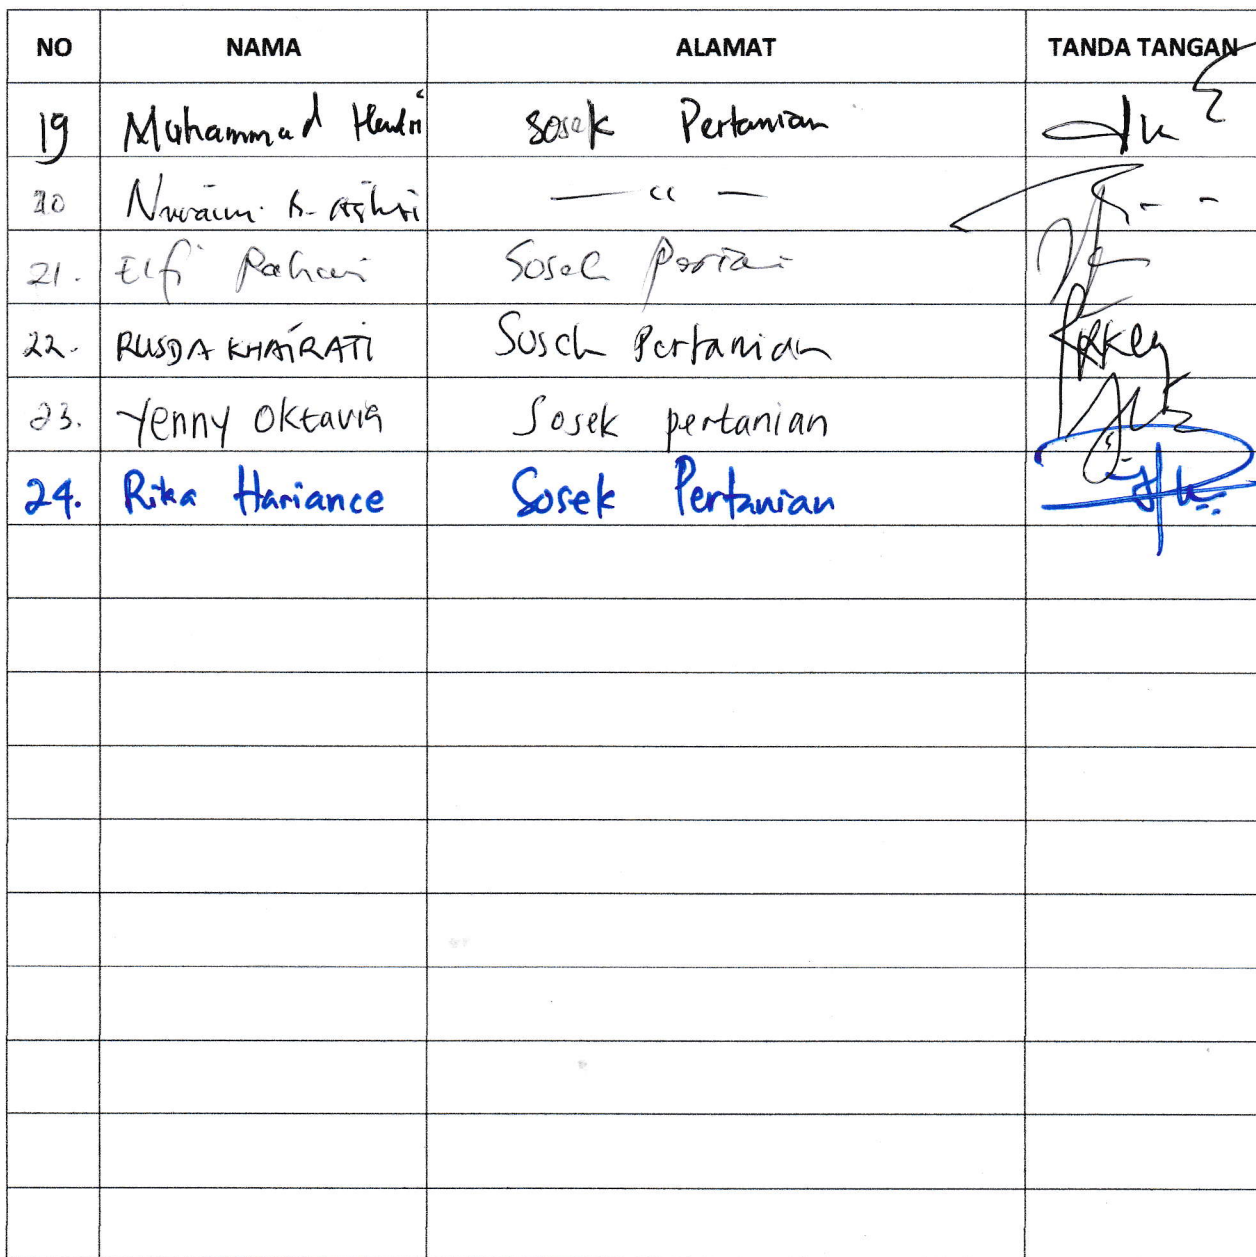 NO NAMA ALAMAT TANDA TANGAN
19 Muhammad Hendri Sosek Pertanian
20 — " —
21. Elfi Rahmi Sosek
22. RUSDA KHAIRATI Sosek Pertanian
23. Yenny Oktavia Sosek pertanian
24. Rika Hariance Sosek Pertanian